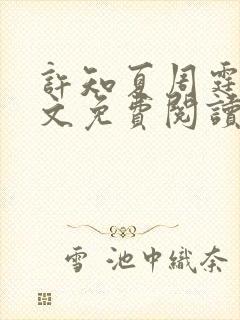 許知夏周霆
文免費閱讀
雪 池中織奈